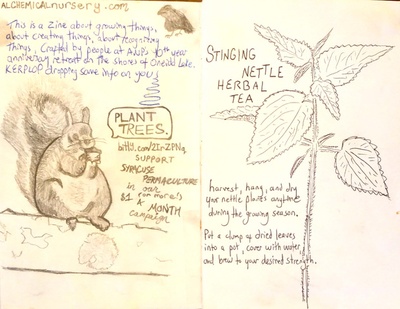 ALCHEMICALnursery.com
This is a Zine about growing things,
about creating things, about
things, crafted by people at ANP's 10th year
anniversary retreat on the shores of Oneida Lake.
KERPLOP dropping some info on you!
PLANT
TREES.
SUPPORT
SYRACUSE
PERMACULTURE
in our
$1 (or more!)
A MONTH
campaign
STINGING
NETTLE
HERBAL
TEA
harvest, hang, and dry
your nettle plants anytime
during the growing season.
Put a clump of dried leaves
into a pot, cover with water,
and brew to your desired strength.